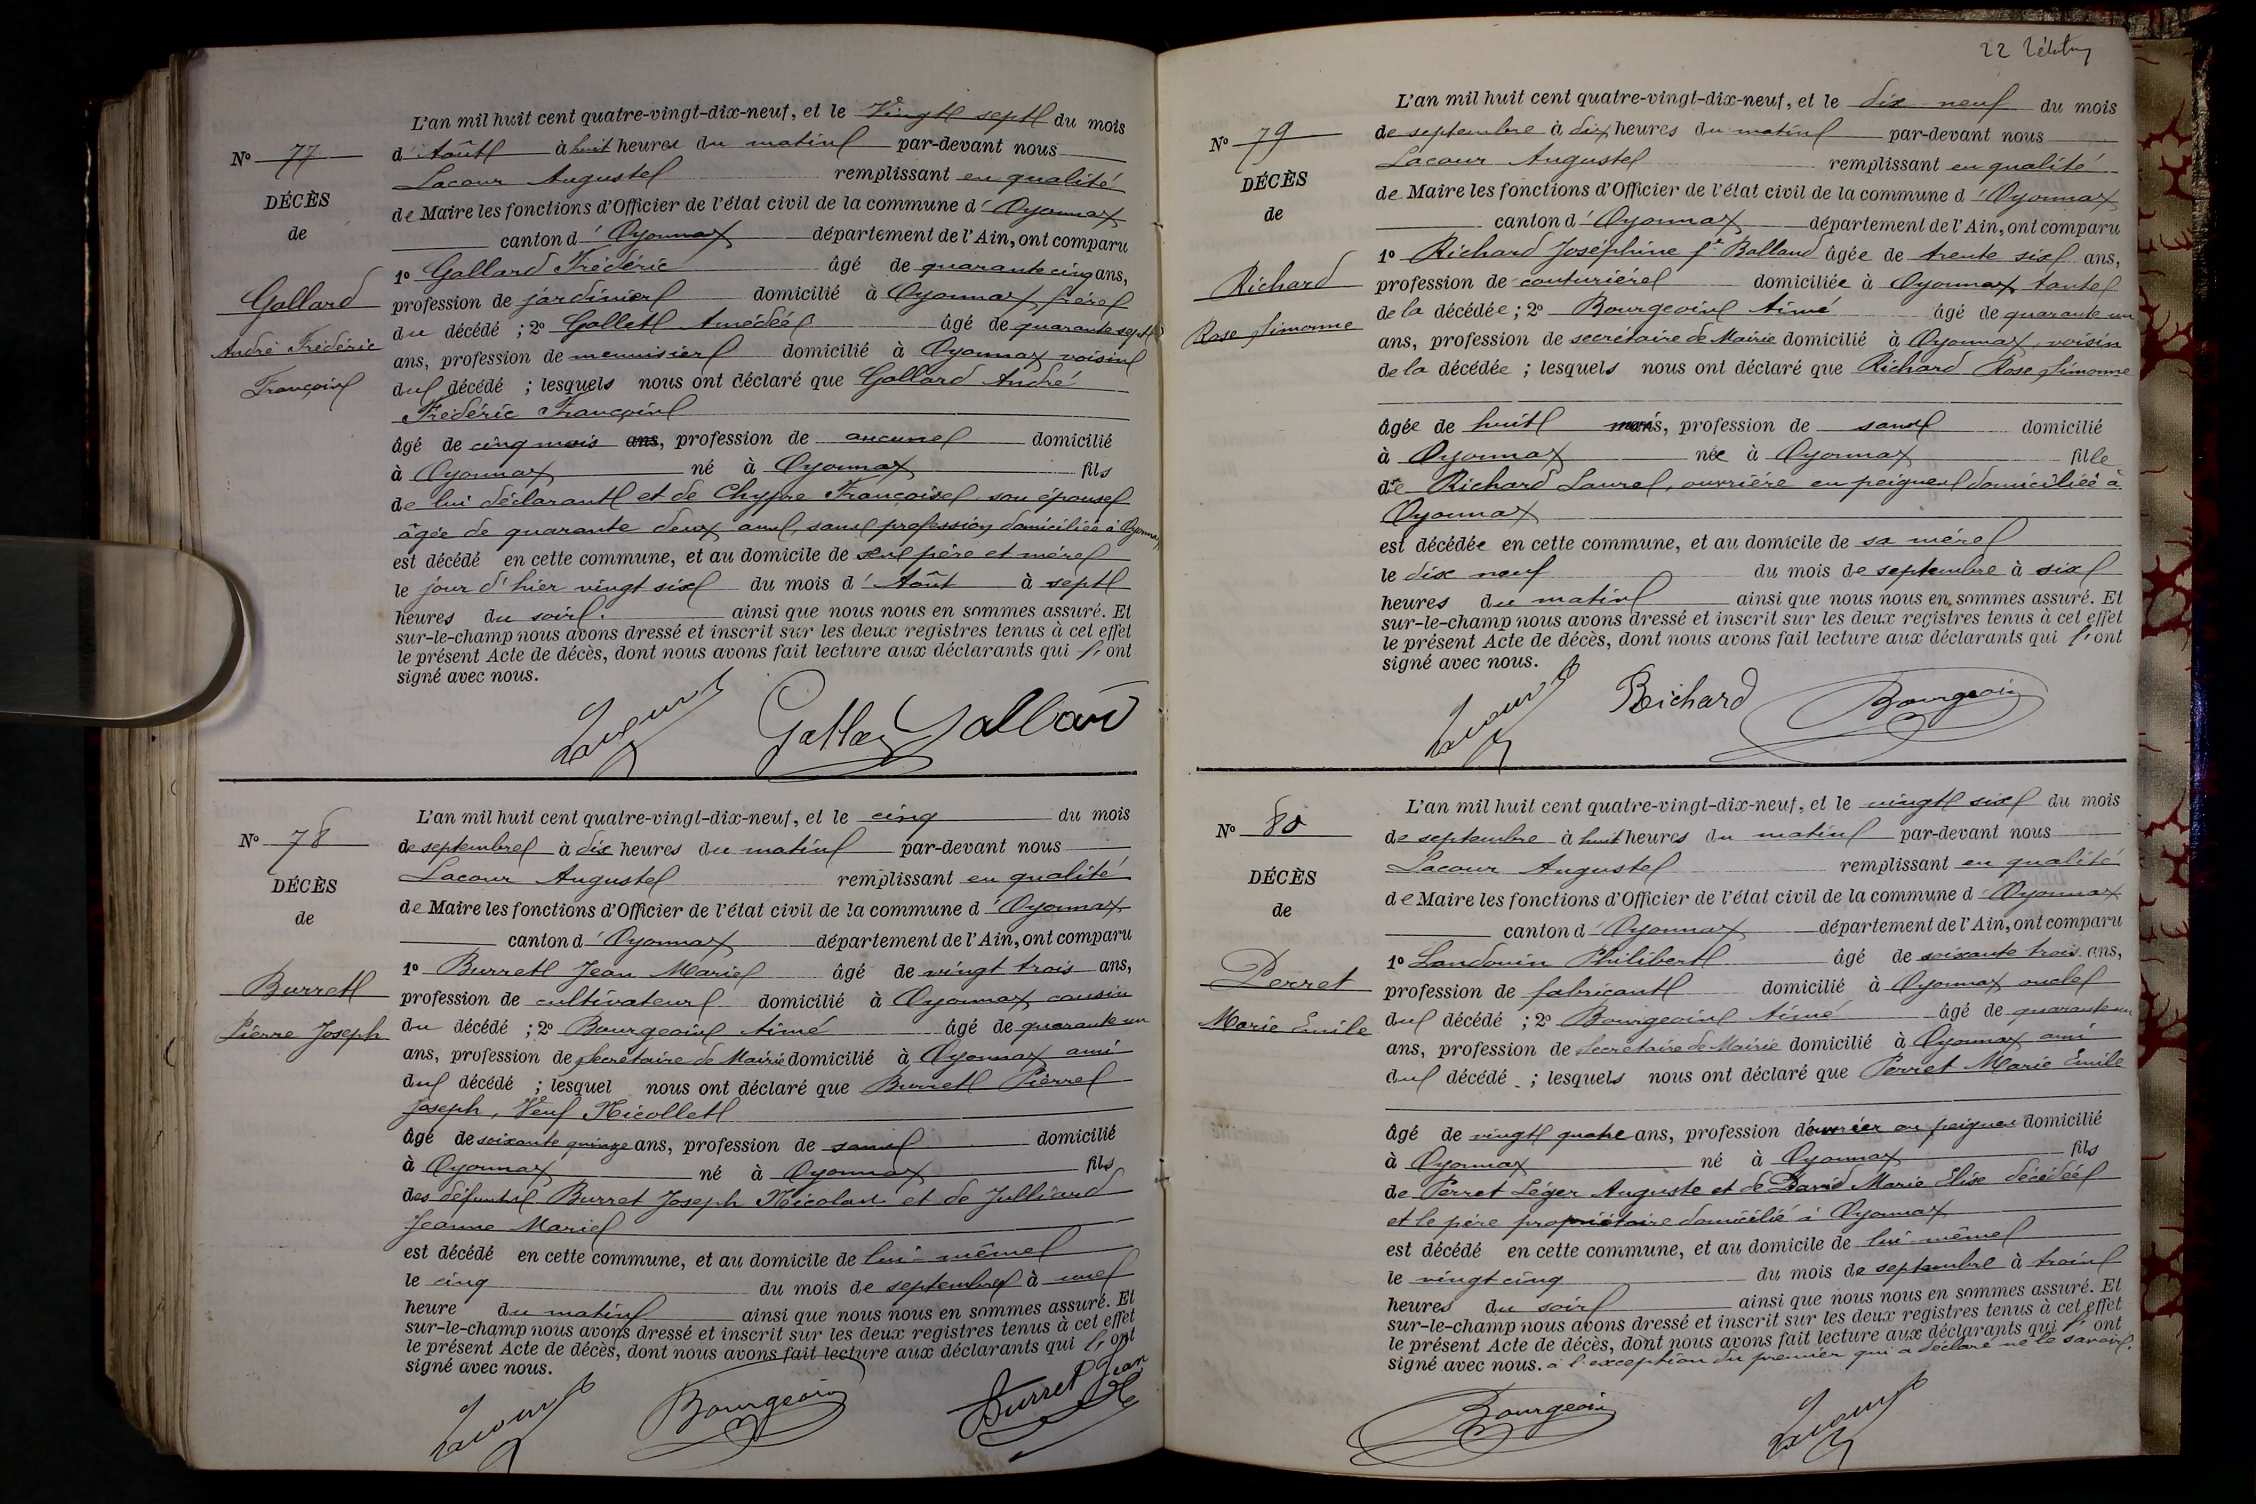 L'an mil huit cent quatre-vingt-dix-neuf, et le Vingt sept du mois
N° 77
d'Août à huit heures du matin par-devant nous
Lacour Auguste remplissant en qualité
DÉCÈS
de Maire les fonctions d'Officier de l'état civil de la commune d'Oyonnax
de
canton d'Oyonnax département de l'Ain, ont comparu
1° Gallard Frédéric âgé de quarante cinq ans,
Gallard
profession de jardinier domicilié à Oyonnax, frère
André Frédéric
du décédé ; 2° Gallet Amédée âgé de quarante sept
ans, profession de menuisier domicilié à Oyonnax voisin
François
du décédé ; lesquels nous ont déclaré que Gallard André
Frédéric François
âgé de cinq mois ans, profession de aucune domicilié
à Oyonnax né à Oyonnax fils
de lui déclarant et de Chypre Françoise son épouse
âgée de quarante deux ans, sans profession domiciliée à Oyonnax
est décédé en cette commune, et au domicile de ses père et mère
le jour d'hier vingt six du mois d'Août à sept
heures du soir. ainsi que nous nous en sommes assuré. Et
sur-le-champ nous avons dressé et inscrit sur les deux registres tenus à cet effet
le présent Acte de décès, dont nous avons fait lecture aux déclarants qui l'ont
signé avec nous.
Lacour Gallet Gallard
L'an mil huit cent quatre-vingt-dix-neuf, et le cinq du mois
N° 78
de septembre à dix heures du matin par-devant nous
Lacour Auguste remplissant en qualité
DÉCÈS
de Maire les fonctions d'Officier de l'état civil de la commune d'Oyonnax
de
canton d'Oyonnax département de l'Ain, ont comparu
1° Burret Jean Marie âgé de vingt trois ans,
Burret
profession de cultivateur domicilié à Oyonnax cousin
Pierre Joseph
du décédé ; 2° Bourgeois Aimé âgé de quarante un
ans, profession de secrétaire de Mairie domicilié à Oyonnax ami
du décédé ; lesquel nous ont déclaré que Burret Pierre
Joseph, Veuf Nicollet
âgé de soixante quinze ans, profession de sans domicilié
à Oyonnax né à Oyonnax fils
des défunts Burret Joseph Nicolas et de Julliard
Jeanne Marie
est décédé en cette commune, et au domicile de lui-même
le cinq du mois de septembre à une
heure du matin ainsi que nous nous en sommes assuré. Et
sur-le-champ nous avons dressé et inscrit sur les deux registres tenus à cet effet
le présent Acte de décès, dont nous avons fait lecture aux déclarants qui l'ont
signé avec nous.
Lacour Bourgeois Burret Jean
22
L'an mil huit cent quatre-vingt-dix-neuf, et le dix neuf du mois
N° 79
de septembre à dix heures du matin par-devant nous
Lacour Auguste remplissant en qualité
DÉCÈS
de Maire les fonctions d'Officier de l'état civil de la commune d'Oyonnax
de
canton d'Oyonnax département de l'Ain, ont comparu
1° Richard Joséphine fe Balland âgée de trente six ans,
Richard
profession de couturière domiciliée à Oyonnax, tante
Rose Simonne
de la décédée ; 2° Bourgeois Aimé âgé de quarante un
ans, profession de secrétaire de Mairie domicilié à Oyonnax, voisin
de la décédée ; lesquels nous ont déclaré que Richard Rose Simonne
âgée de huit mois, profession de sans domicilié
à Oyonnax née à Oyonnax fille
de Richard Laure, ouvrière en peignes domiciliée à
Oyonnax
est décédée en cette commune, et au domicile de sa mère
le dix neuf du mois de septembre à six
heures du matin ainsi que nous nous en sommes assuré. Et
sur-le-champ nous avons dressé et inscrit sur les deux registres tenus à cet effet
le présent Acte de décès, dont nous avons fait lecture aux déclarants qui l'ont
signé avec nous.
Lacour Richard Bourgeois
L'an mil huit cent quatre-vingt-dix-neuf, et le vingt six du mois
N° 80
de septembre à huit heures du matin par-devant nous
Lacour Auguste remplissant en qualité
DÉCÈS
de Maire les fonctions d'Officier de l'état civil de la commune d'Oyonnax
de
canton d'Oyonnax département de l'Ain, ont comparu
1° Landouin Philibert âgé de soixante trois ans,
Perret
profession de fabricant domicilié à Oyonnax oncle
Marie Emile
du décédé ; 2° Bourgeois Aimé âgé de quarante un
ans, profession de secrétaire de Mairie domicilié à Oyonnax ami
du décédé ; lesquels nous ont déclaré que Perret Marie Emile
âgé de vingt quatre ans, profession d'ouvrier en peignes domicilié
à Oyonnax né à Oyonnax fils
de Perret Léger Auguste et de David Marie Elise décédée
et le père propriétaire domicilié à Oyonnax
est décédé en cette commune, et au domicile de lui-même
le vingt cinq du mois de septembre à trois
heures du soir ainsi que nous nous en sommes assuré. Et
sur-le-champ nous avons dressé et inscrit sur les deux registres tenus à cet effet
le présent Acte de décès, dont nous avons fait lecture aux déclarants qui l'ont
signé avec nous. à l'exception du premier qui a déclaré ne le savoir.
Bourgeois Lacour